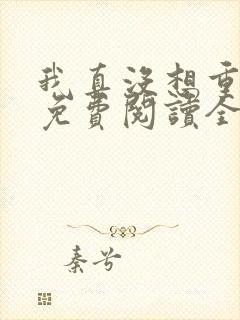 我真没想重
免費閱讀全
秦兮